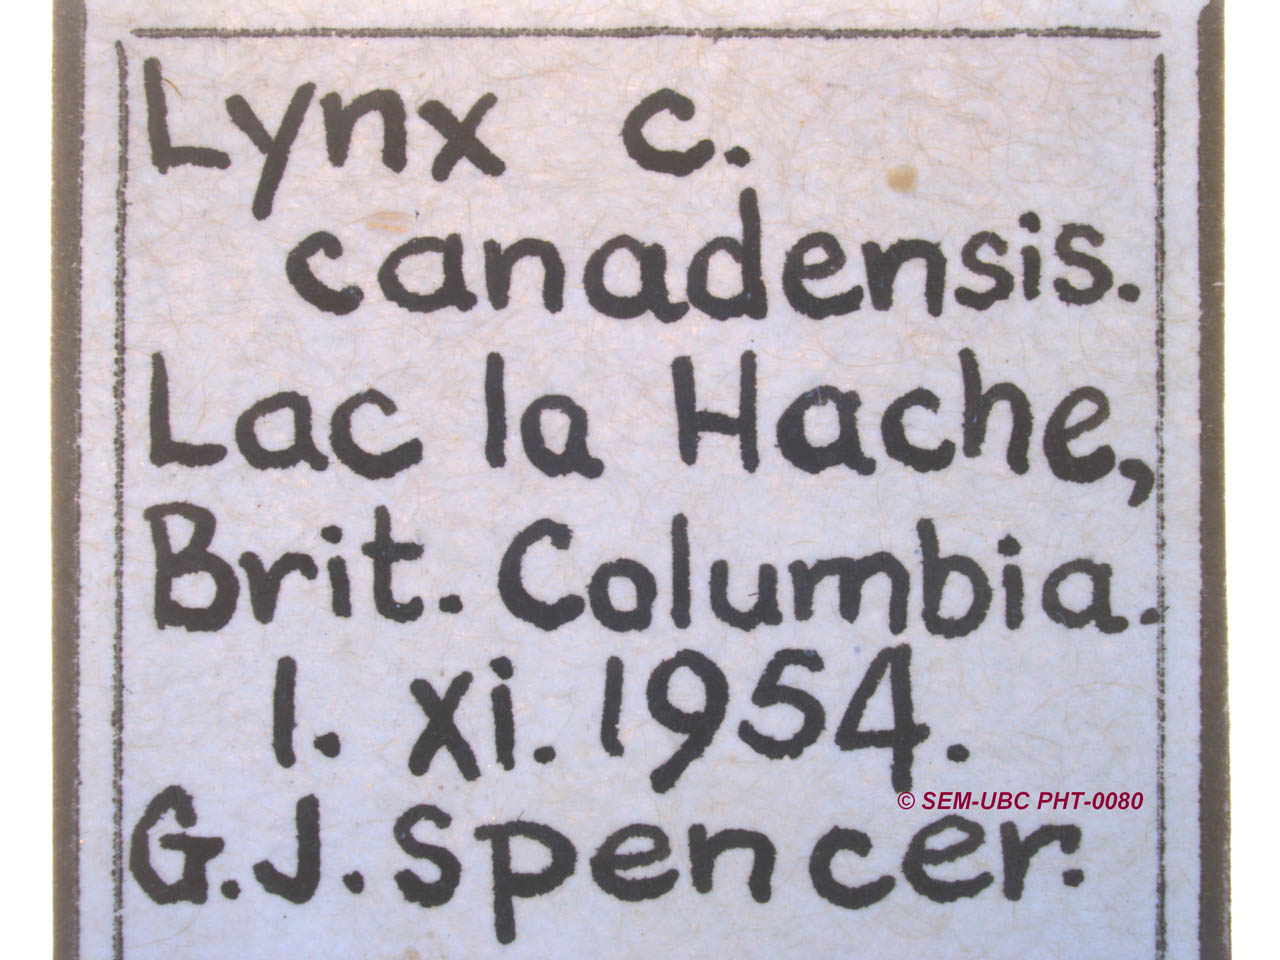 Lynx c.
canadensis.
Lac la Hache,
Brit. Columbia.
1. xi. 1954.
© SEM-UBC PHT-0080
G.J. Spencer.